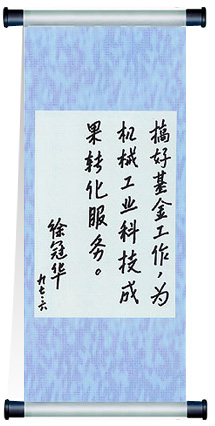 搞好基金工作，为
机械工业科技成
果转化服务。
徐冠华
九七·六